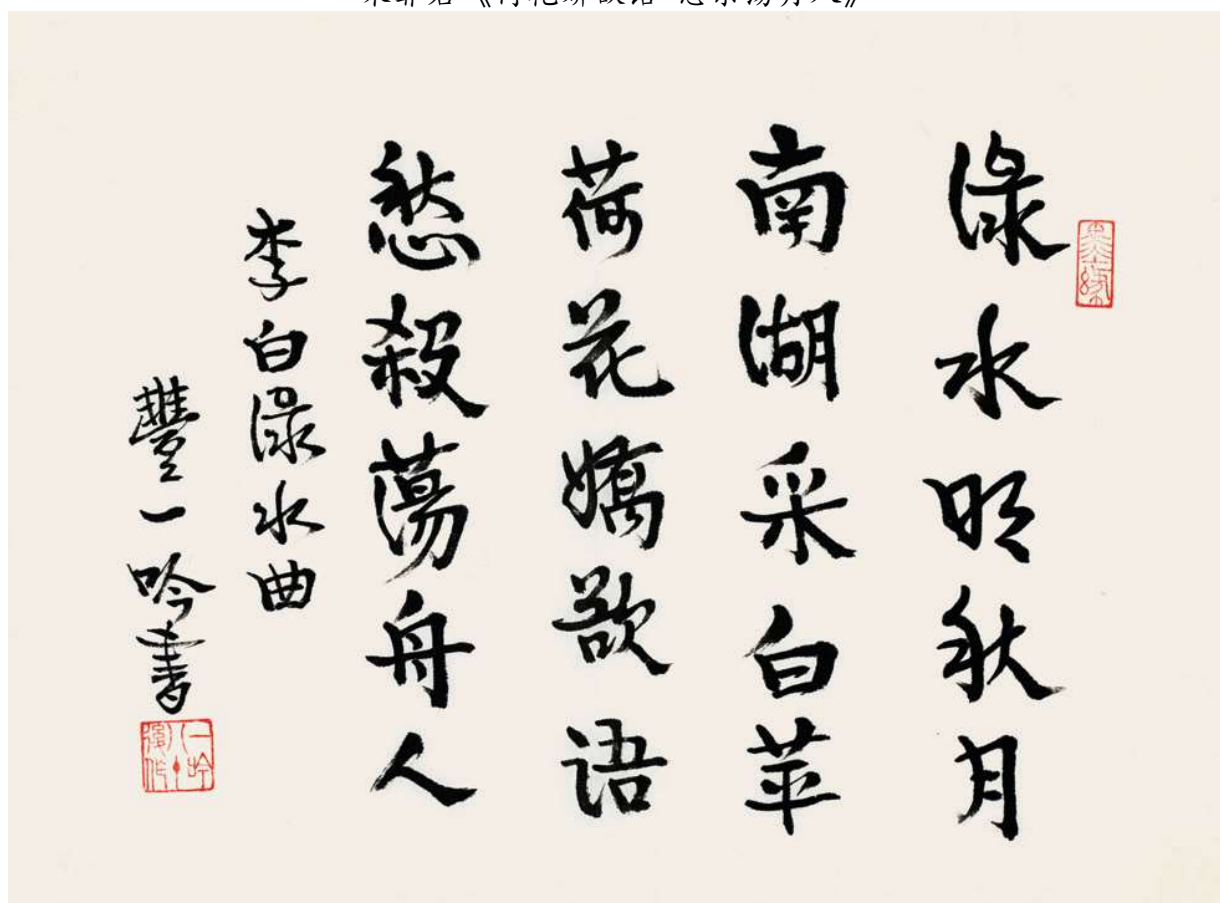 渌水明秋月
南湖采白苹
荷花嬌欲语
愁殺蕩舟人
李白渌水曲
豐一吟書